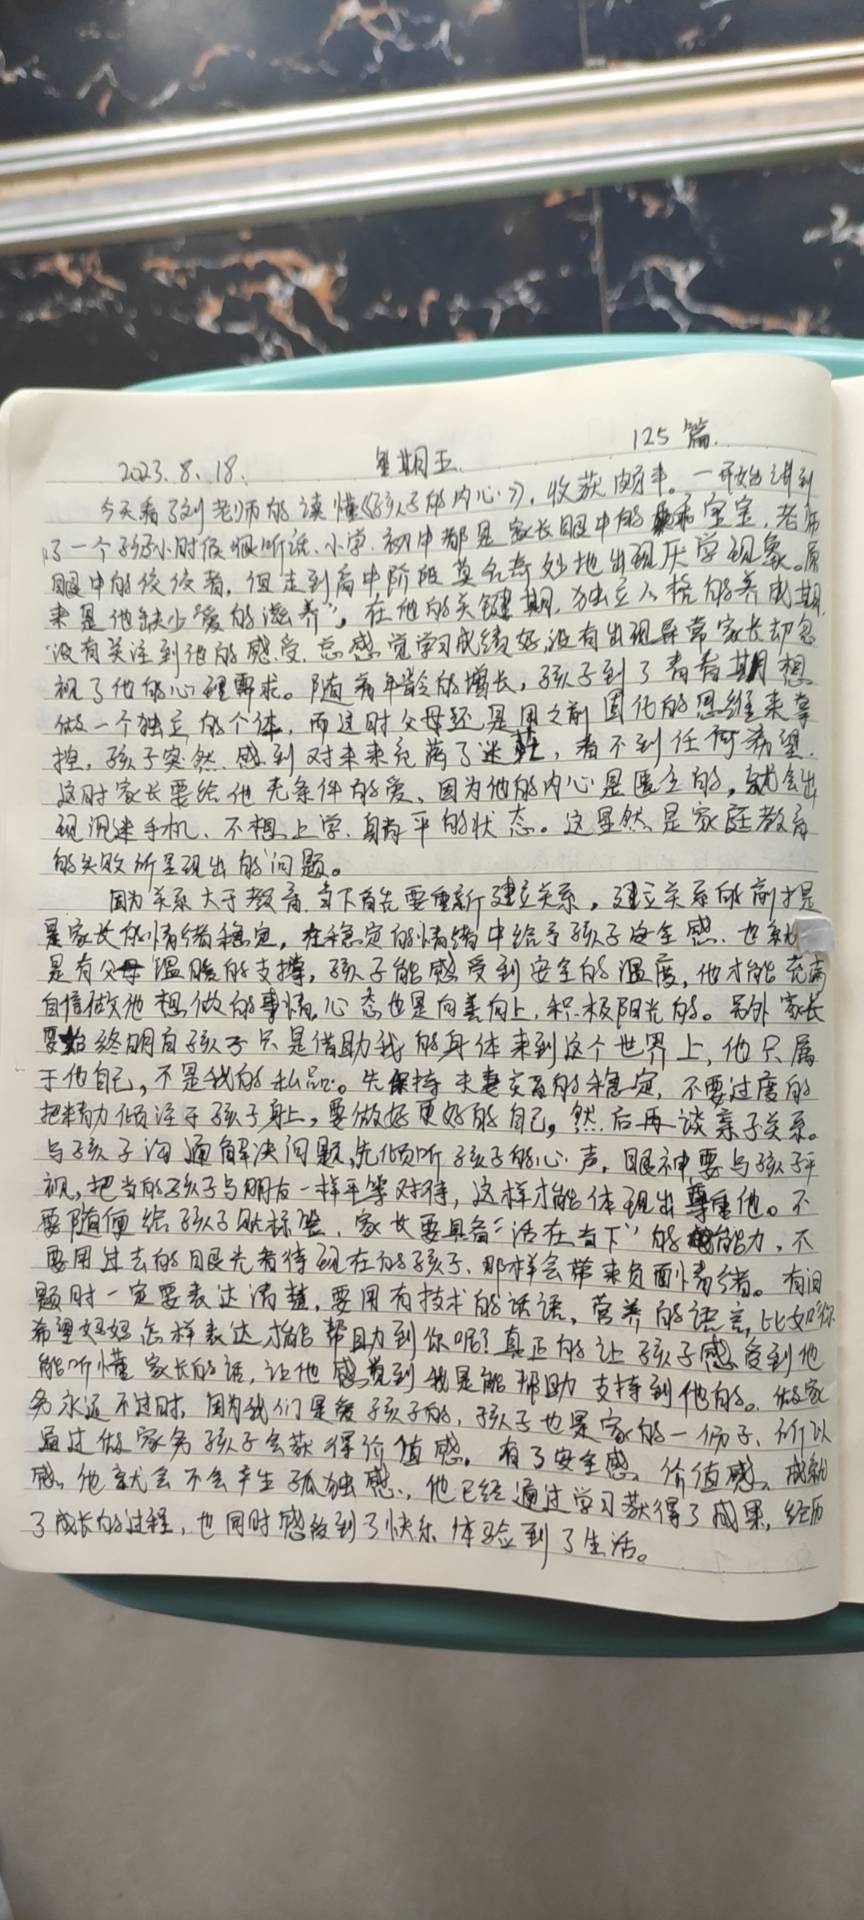 125篇.
2023.8.18. 星期五.
今天看了刘老师的读懂《孩子的内心》, 收获颇丰。一开始讲到
了一个孩子小时候很听话、小学、初中都是家长眼中的乖宝宝, 老师
眼中的佼佼者, 但走到高中阶段莫名奇妙地出现厌学现象。原
来是他缺少“爱的滋养”。在他的关键期, 独立人格的养成期,
没有关注到他的感受, 总感觉学习成绩好, 没有出现异常家长却忽
视了他的心理需求。随着年龄的增长, 孩子到了青春期想
做一个独立的个体, 而这时父母还是用之前固化的思维来掌
控, 孩子突然感到对未来充满了迷茫, 看不到任何希望.
这时家长要给他无条件的爱、因为他的内心是匮乏的, 就会出
现沉迷手机、不想上学、躺平的状态。这显然是家庭教育
的失败所呈现出的问题。
因为关系大于教育, 当下首先要重新建立关系, 建立关系的前才是
是家长的情绪稳定, 在稳定的情绪中给予孩子安全感. 也就
是有父母温暖的支撑, 孩子能感受到安全的温度, 他才能充满
自信做他想做的事情, 心态也是向善向上, 积极阳光的。另外家长
要始终明白孩子只是借助我的身体来到这个世界上, 他只属
于他自己, 不是我的私品。先保持夫妻关系的稳定, 不要过度的
把精力倾注于孩子身上, 要做好更好的自己, 然后再谈亲子关系。
与孩子沟通解决问题, 先倾听孩子的心声, 眼神要与孩子平
视, 把当的孩子与朋友一样平等对待, 这样才能体现出尊重他。不
要随便给孩子贴标签, 家长要具备“活在当下”的能力, 不
要用过去的眼光看待现在的孩子, 那样会带来负面情绪。有问
题时一定要表达清楚, 要用有技术的话语, 营养的语言, 比如“你
希望妈妈怎样表达才能帮助到你呢?真正的让孩子感受到他
能听懂家长的话, 让他感觉到我是能帮助支持到他的。做家
务永远不过时, 因为我们是爱孩子的, 孩子也是家的一份子, 所以
通过做家务孩子会获得价值感。有了安全感、价值感、成就
感, 他就会不会产生孤独感, 他已经通过学习获得了成果, 经历
了成长的过程, 也同时感受到了快乐体验到了生活。